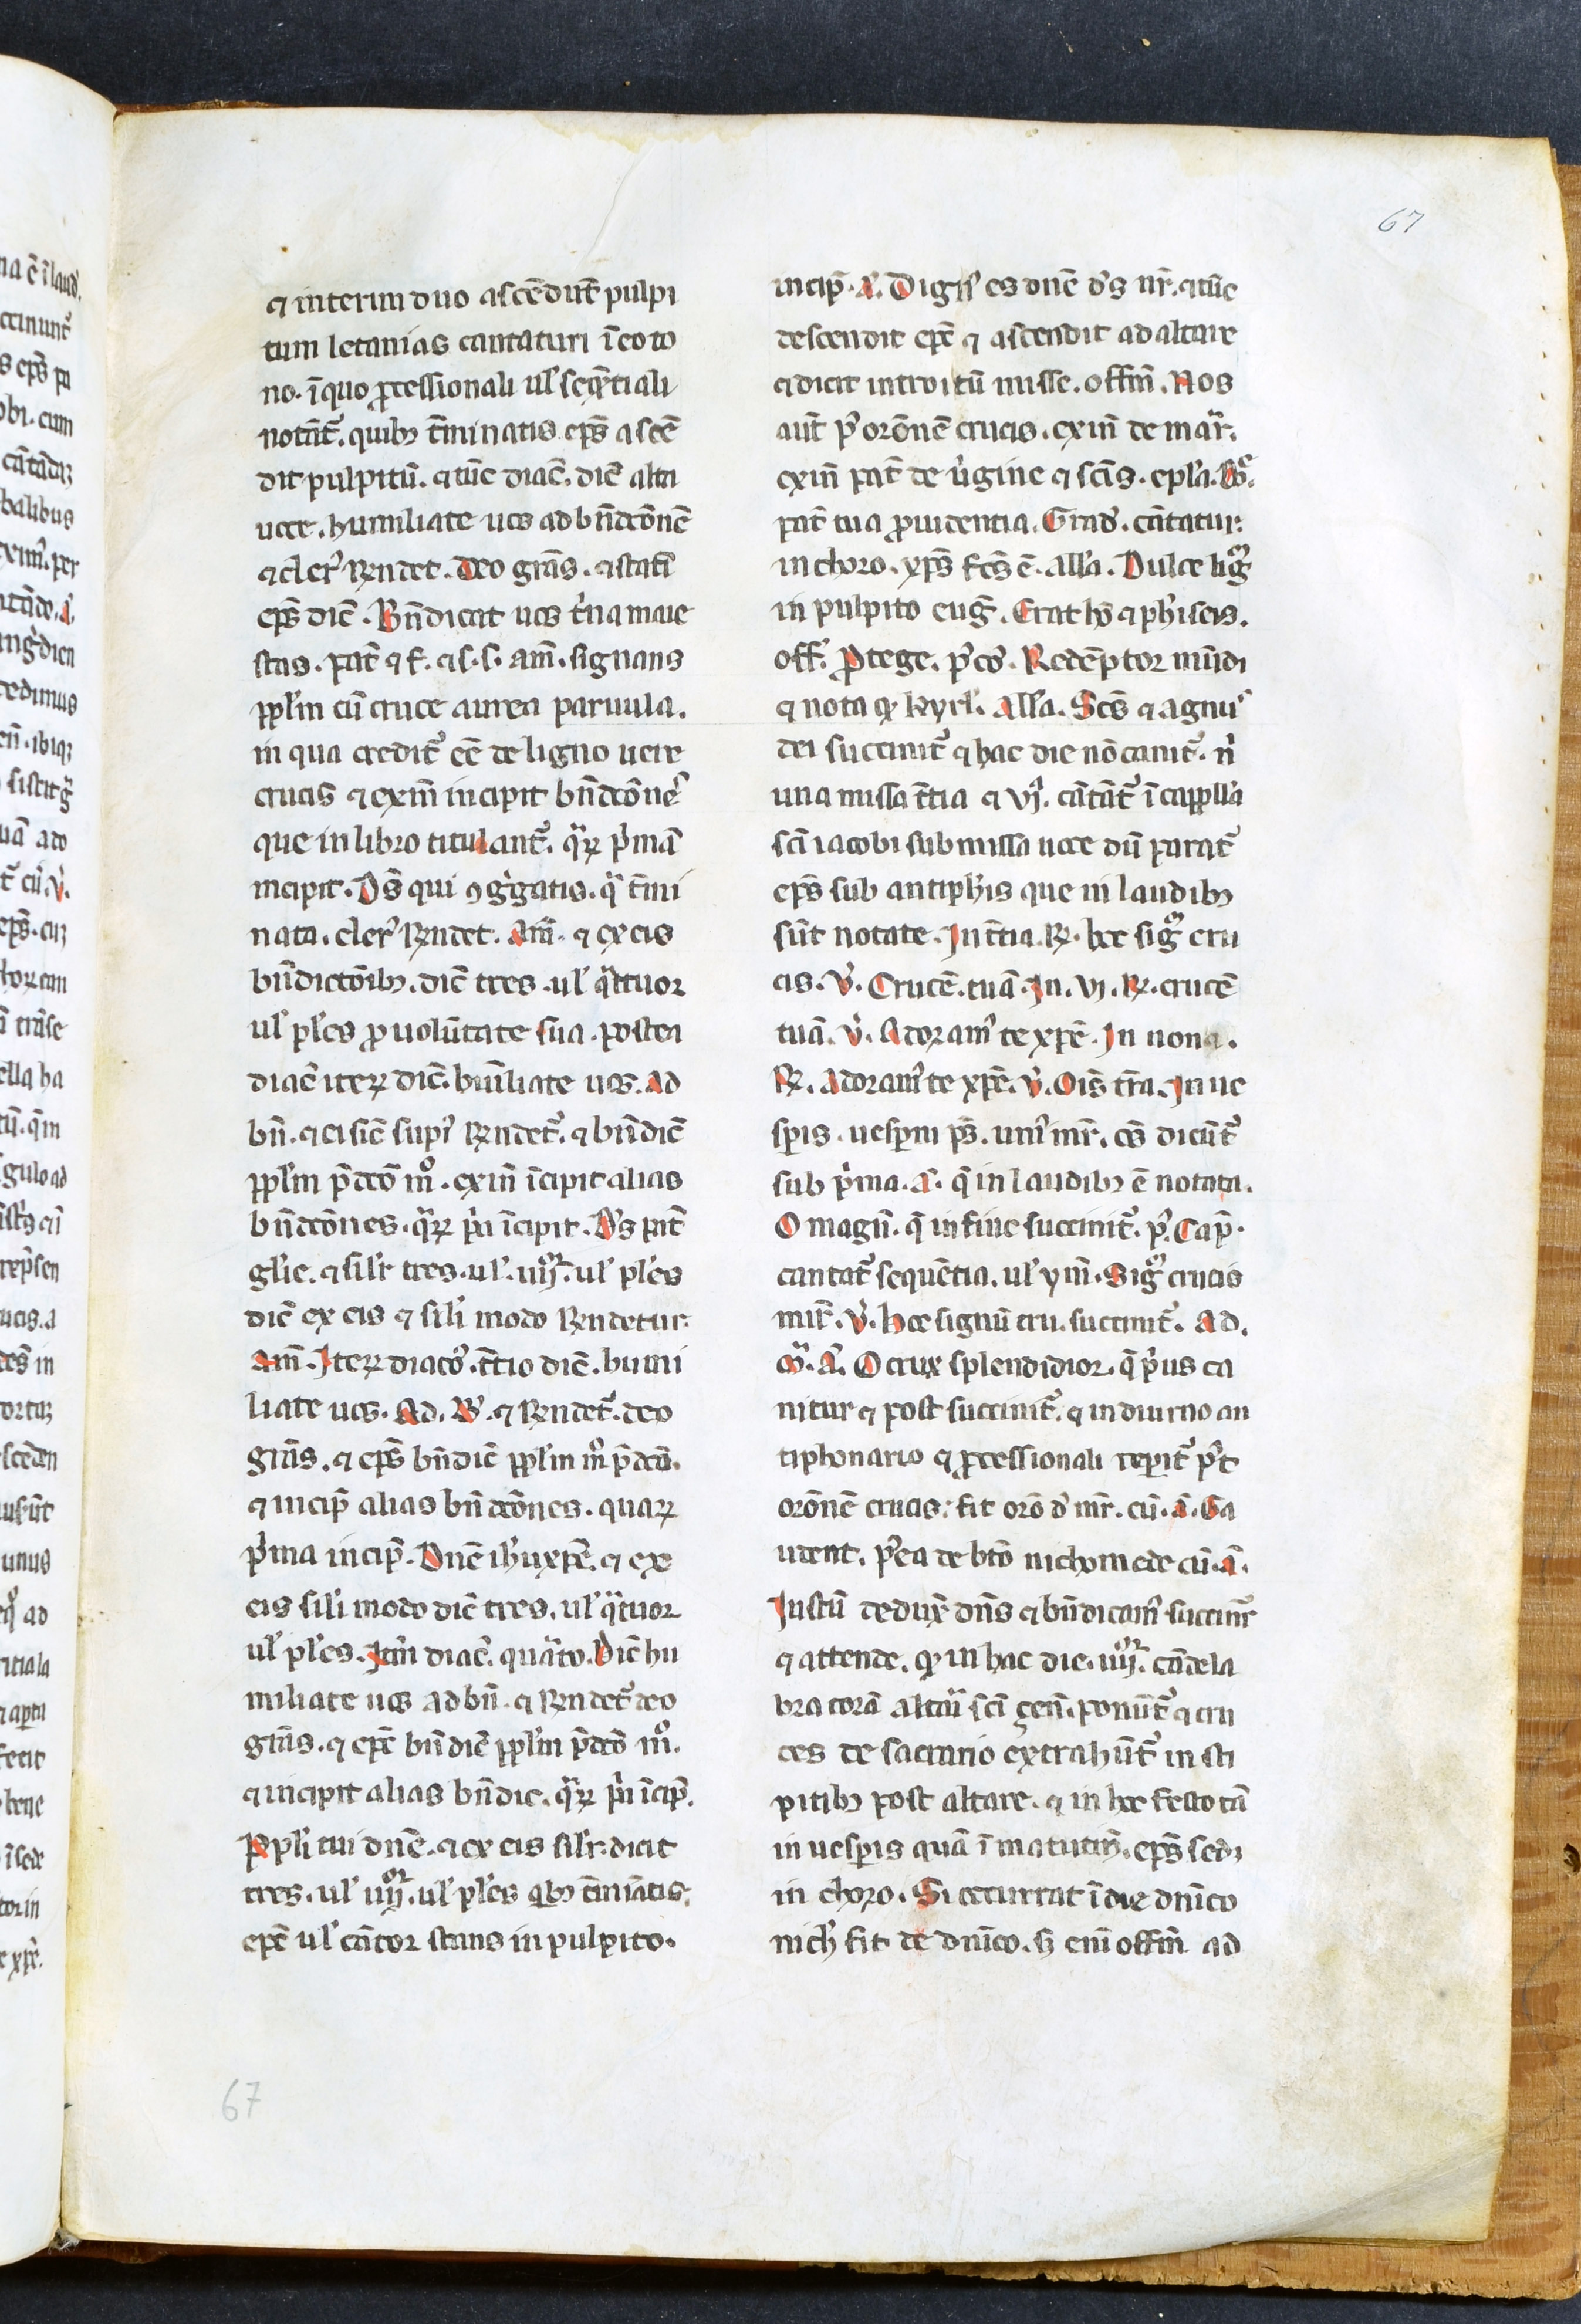 67
⁊ interim duo ascēdūt᷑ pulpi
tum letanias cantaturi ī eo to
no. ī quo ꝓcessionali ul' seq̄ntiali
notāt᷑. quib₉ t̄minatis ep̄s ascē
dit pulpitū. ⁊ tūc diac̄. dic̄ alta
uoce. humiliate uos ad bn̄dcōnē
⁊ cler᷑ Rn̄det. Deo grās. ⁊ statī
ep̄s dic̄. Bn̄dicat uos t'na maie
stas. pat̄ ⁊ f. ⁊ s. s. am̄. signans
ppl'm cū cruce aurea paruula.
in qua credit᷑ eē de ligno uere
crucis ⁊ exin̄ incipit bn̄dcōnes
que in libro titulant᷑. q̈rꝝ p'mā
incipit. Ds̄ qui ꝯg'gatis. q̈ t̄mi
nata. cler᷑ Rn̄det. Am̄. ⁊ ex eis
bn̄dictōib₉. dic̄ tres. ul' q̈ttuor
ul' pl'es ꝓ uolūtate sua. postea
diac̄ iteꝝ dic̄. humiliate uos. Ad
bn̄. ⁊ ei sic̄ sup᷑ Rn̄det᷑. ⁊ bn̄dic̄
ppl'm p̄dcō mº. exin̄ īcipit alias
bn̄dcōnes. q̈rꝝ p'ī īcipit. Ds̄ pat̄
gl'ie. ⁊ sil'r tres. ul'. iiij. ul' pl'es
dic̄ ex eis ⁊ sil'i modo Rn̄detur.
am̄. Iteꝝ diaco᷑. t̄tio dic̄. humi
liate uos. Ad. B'. ⁊ Rn̄det᷑. deo
grās. ⁊ ep̄s bn̄dic̄ ppl'm mº p̄dcō.
⁊ incip̄ alias bn̄dcōnes. quaꝝ
p'ma incip̄. Dn̄e ih'u xp̄e. ⁊ ex
eis sil'i modo dic̄ tres. ul' q̈tuor
ul' pl'es. Itm̄ diac̄. quarto. Dic̄ hu
miliate uos ad bn̄. ⁊ Rn̄det᷑ deo
grās. ⁊ ep̄c bn̄dic̄ ppl'm p̄dcō mº.
⁊ incipit alias bn̄dic. q̈rꝝ p'ī īcip̄.
Ppl'i tui dn̄e. ⁊ ex eis sil'r. dicit
tres. ul' iiij. ul' pl'es qb₉ t̄minatis.
ep̄c ul' cātor stans in pulpito.
incip̄. A᷑. Dign᷑ es dn̄e d's nr̄. ⁊ tūc
descendit ep̄c ⁊ ascendit ad altare
⁊ dicit introitū misse. offm̄. Nos
aūt p' orōnē crucis. exin̄ de mar̄.
exin̄ pat̄ de v'gine ⁊ sc̄is. epl'a.
pat̄ tua ꝓuidentia. Grad'. cātatur.
in choro. xp̄s fc̄s ē. all'a. Dulce lig
in pulpito euḡ. Erat hō ⁊ phi'seis.
off. Ptege. p' cō. Redēptor mūdi
⁊ nota qꝫ kyrl'. all'a. Scs̄ ⁊ agnus
dei succinit᷑ ⁊ hac die nō canit᷑. n'
una missa t̄tia ⁊ vj. cātāt᷑ ī cappl'a
sc̄i iacobi submissa uoce dū parat᷑
ep̄s sub antiph'is que in laudib₉
sūt notate. In t̄tia. R. hoc sig cru
cis. V. Crucē tuā. In. vj. R. crucē
tuā. V. Adoram᷑ te xp̄e. In nona.
R. Adoram᷑ te xp̄e. V. Ois̄ tr̄a. In ue
spis. uespini p̄s. uni᷑ mr̄. os̄ dicūt᷑
sub p'ma. A᷑. q̄ in laudib₉ ē notata.
O magn̄. q̄ in fine succinit᷑. p'. Cap̄.
cantat᷑ sequētia. ul' ymn̄. Sig crucis
mir̄. V. hoc signū cru. succinit᷑. Ad.
m̄. A᷑. O crux splendidior. q̄ p'us ca
nitur ⁊ post succinit᷑. ⁊ in diurno an
tiphonario ⁊ ꝓcessionali repit᷑ p't
orōnē crucis: fit orō d' mr̄. cū. A᷑. Ga
udent. p'ea de btō nichomede cū. A᷑.
Iustū dedux̄ dn̄s ⁊ bn̄dicam᷑ succinit᷑
⁊ attende. qꝫ in hac die. iiij. cādela
bra corā altari sc̄i geii. ponūt᷑ ⁊ cru
ces de sacrario extrahūt᷑ in sti
pitib₉ post altare. ⁊ in hoc festo tā
in uespis quā ī matutin̄. ep̄s sedꝫ
in choro. Si occurrat ī die dn̄ico
nich' fit de dn̄ico. sꝫ eni᷑ offm̄ ad
67